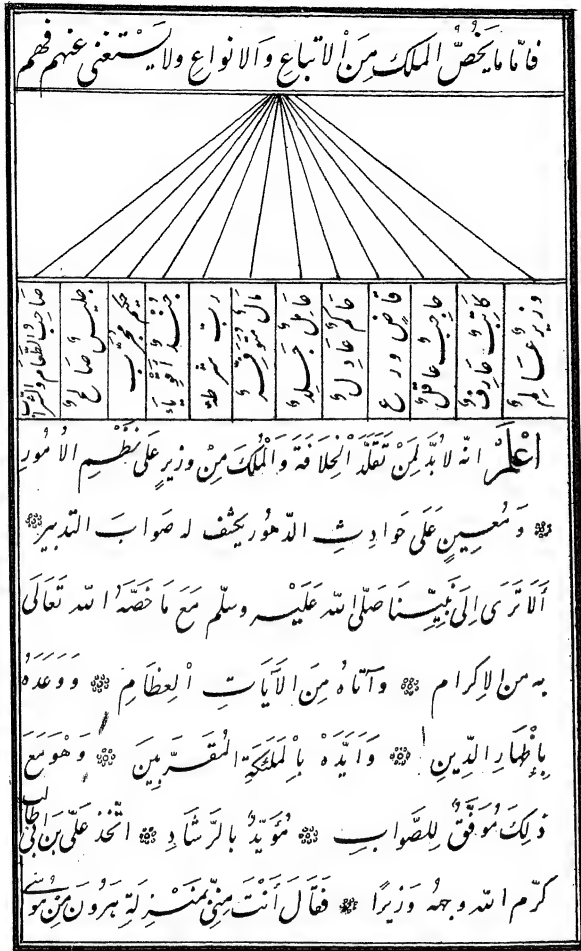 فامّا ما يَخُصُّ الملك مِنَ الْاتباعِ وَالانواعِ ولا يستغنى عنهم فهم
وزيرٌ عَالِمٌ
كاتبٌ عارفٌ
حاجبٌ عاقلٌ
قاضٍ ورع
حاكمٌ عادلٌ
عاملٌ جَلِدٌ
مالٌ مُتَوَفِّرٌ
ربّ شرطه
جُنْدٌ أَقْوِيَاءُ
حكيم مجرّبٌ
جليسٌ صالحٌ
صاحبُ الطَّعامِ والشراب
اعْلَمْ انّه لا بُدَّ لِمَنْ تَقَلَّدَ الْخِلَافَةَ وَالْمُلْكَ مِنْ وزيرٍ عَلَى نَظْمِ الامُورِ
وَمُعِينٍ عَلَى حَوَادِثِ الدّهُورِ يكشف له صوابَ التدبيرِ
أَلَا تَرَى اِلَى نَبِيِّنَا صَلَّى اللّه عَلَيْهِ وسلّم مَعَ مَا خَصَّهُ اللّه تَعَالَى
به من الاِكرام وَآتَاهُ مِنَ الآيَاتِ الْعِظَامِ وَوَعَدَهُ
بِاِظْهَارِ الدِّينِ وَاَيَّدَهُ بِالْمَلٰئِكَةِ المُقَرَّبِينَ وَهُوَ مَعَ
ذٰلِكَ مُوَفَّقٌ لِلصَّوابِ مُؤَيَّدٌ بالرَّشَادِ اتَّخَذَ عَلَىَّ بن ابى طالب
كرّم اللّه وجهَهُ وَزِيرًا فَقَالَ أَنْتَ مِنِّى بِمَنْزِلَةِ هَرُونَ مِنْ مُوسَى